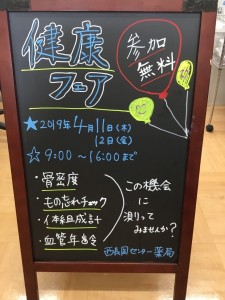 健康
フェア
参加
無料
★2019年4月11日(木)
12日(金)
☆9:00〜16:00まで
・骨密度
・もの忘れチェック
・体組成計
・血管年齢
この機会
に
測って
みませんか?
センター薬局